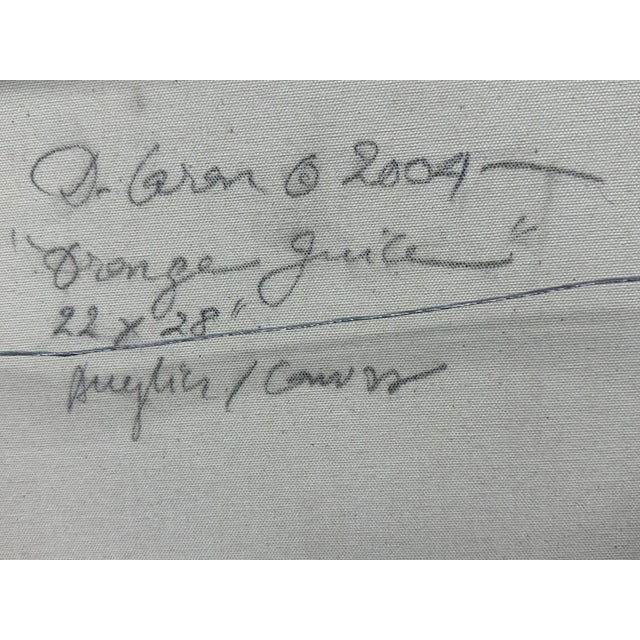 D. Caron © 2004
"Orange Juice"
22 x 28"
Acrylic / Canvas